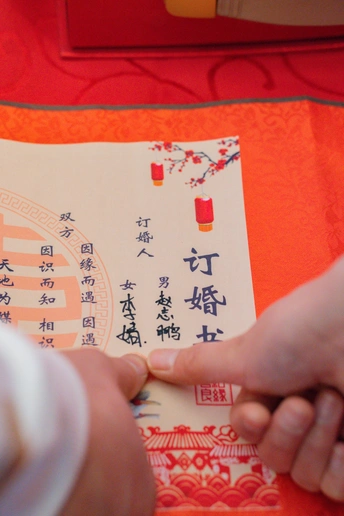 订婚书
订婚人
男 赵志鹏
女 李
双方
因缘而遇 因遇
因识而知 相识
天地为媒